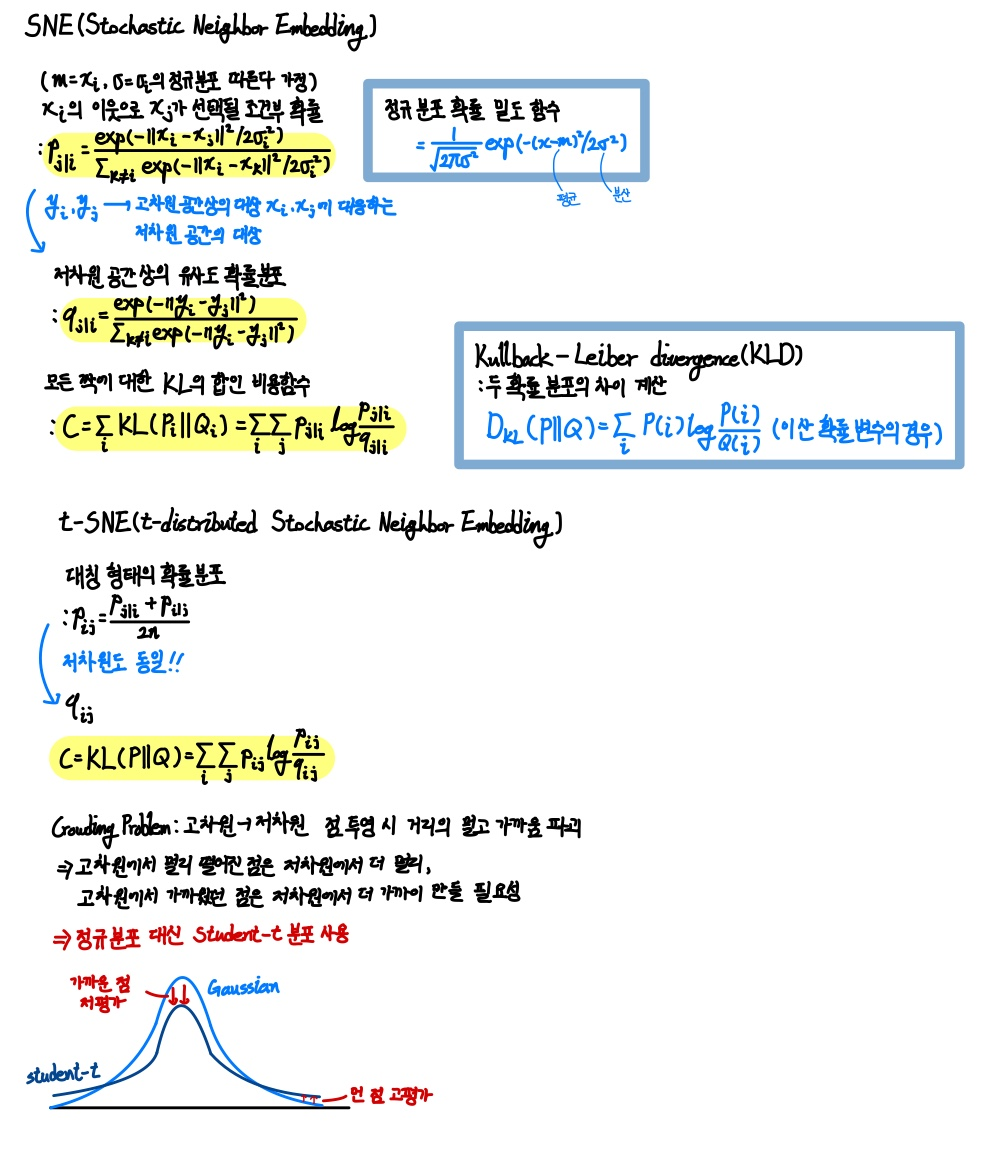 SNE(Stochastic Neighbor Embedding)
(m=xᵢ, σ=σᵢ의 정규분포 따른다 가정)
xᵢ의 이웃으로 xⱼ가 선택될 조건부 확률
: p_{j|i} = exp(-||xᵢ-xⱼ||²/2σᵢ²) / Σ_{k≠i} exp(-||xᵢ-xₖ||²/2σᵢ²)
정규분포 확률 밀도 함수
= 1/√(2πσ²) exp(-(x-m)²/2σ²)
평균 분산
yᵢ, yⱼ → 고차원 공간상의 대상 xᵢ, xⱼ에 대응하는
저차원 공간의 대상
저차원 공간상의 유사도 확률분포
: q_{j|i} = exp(-||yᵢ-yⱼ||²) / Σ_{k≠i} exp(-||yᵢ-yⱼ||²)
모든 짝에 대한 KL의 합인 비용함수
: C = Σᵢ KL(Pᵢ||Qᵢ) = Σᵢ Σⱼ p_{j|i} log p_{j|i}/q_{j|i}
Kullback-Leiber divergence(KLD)
: 두 확률 분포의 차이 계산
D_{KL}(P||Q) = Σᵢ P(i) log P(i)/Q(i) (이산 확률 변수의 경우)
t-SNE(t-distributed Stochastic Neighbor Embedding)
대칭 형태의 확률분포
: p_{ij} = (p_{j|i} + p_{i|j}) / 2n
저차원도 동일!!
q_{ij}
C = KL(P||Q) = Σᵢ Σⱼ p_{ij} log p_{ij}/q_{ij}
Crowding Problem : 고차원→저차원 점 투영 시 거리의 멀고 가까움 파괴
⇒ 고차원에서 멀리 떨어진 점은 저차원에서 더 멀리,
고차원에서 가까웠던 점은 저차원에서 더 가까이 만들 필요성
⇒ 정규분포 대신 Student-t 분포 사용
가까운 점
저평가
Gaussian
student-t
먼 점 고평가